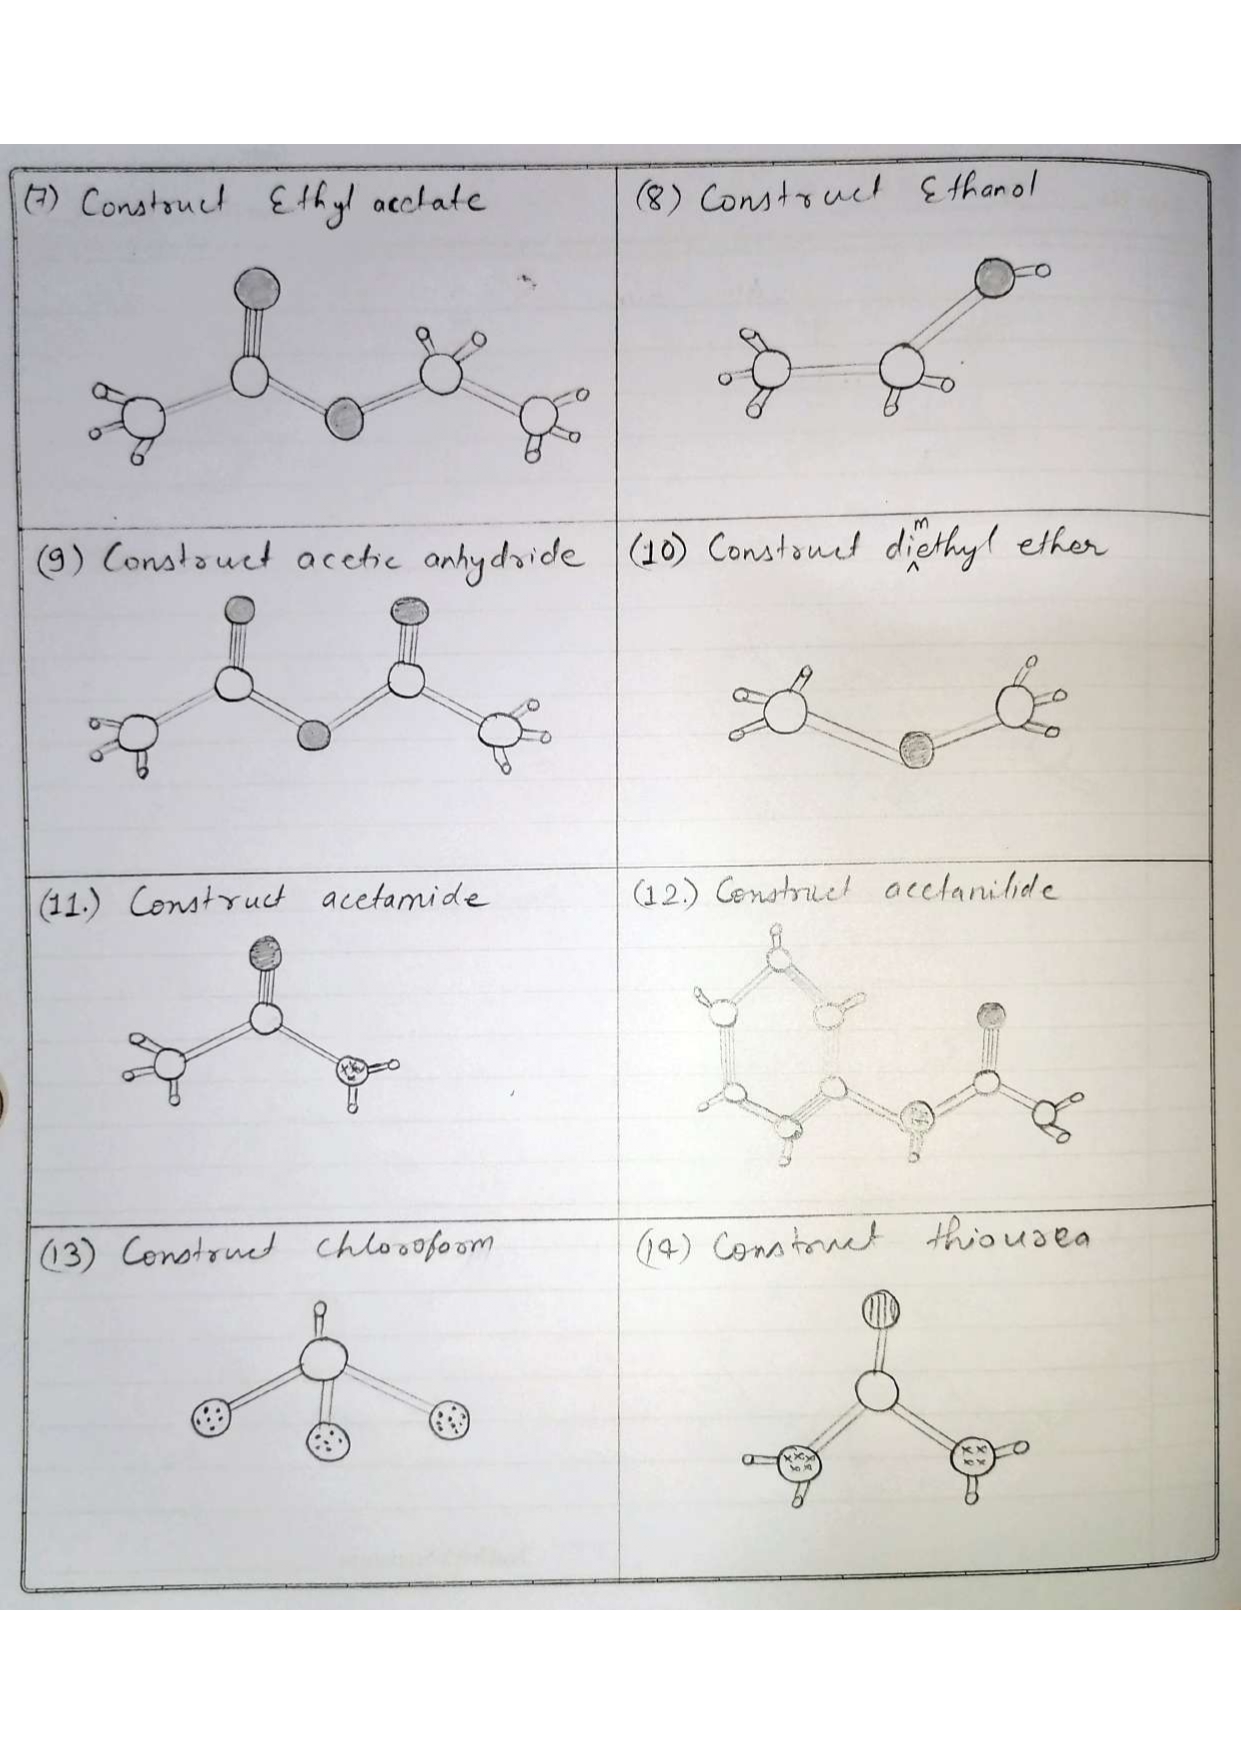 (7) Construct Ethyl acetate
(8) Construct Ethanol
(9) Construct acetic anhydride
(10) Construct dimethyl ether
(11.) Construct acetamide
(12.) Construct acetanilide
(13) Construct chloroform
(14) Construct thiourea